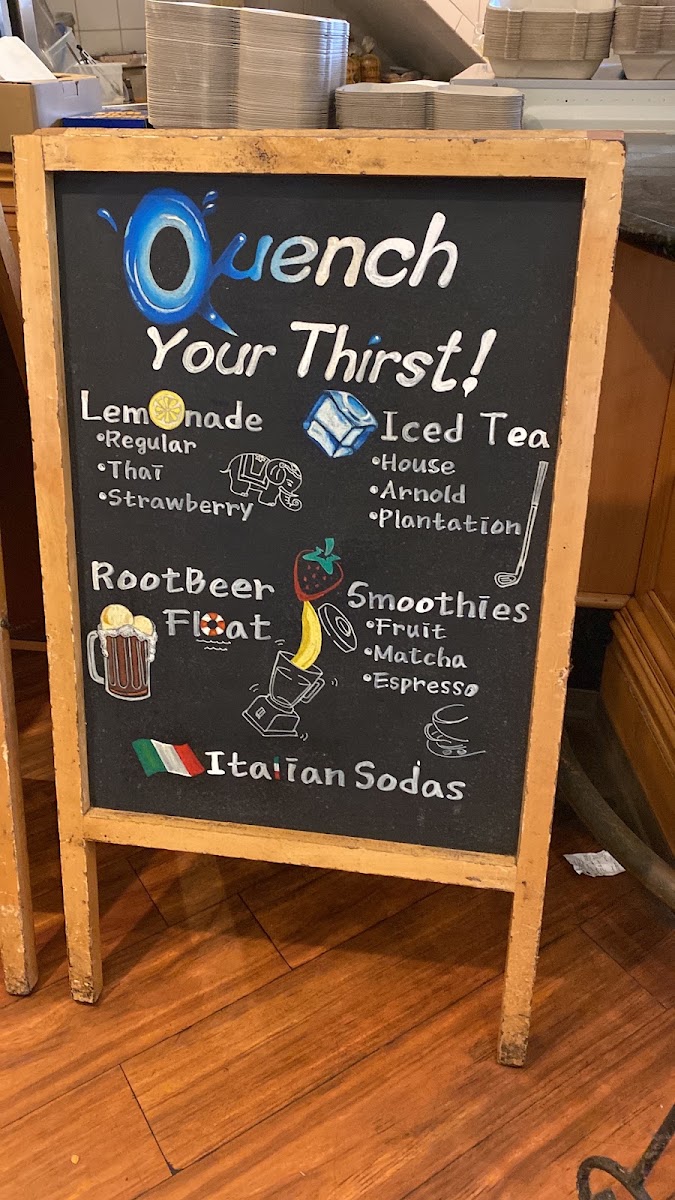 Quench
Your Thirst!
Lemonade
•Regular
•Thai
•Strawberry
Iced Tea
•House
•Arnold
•Plantation
RootBeer
Float
Smoothies
•Fruit
•Matcha
•Espresso
Italian Sodas